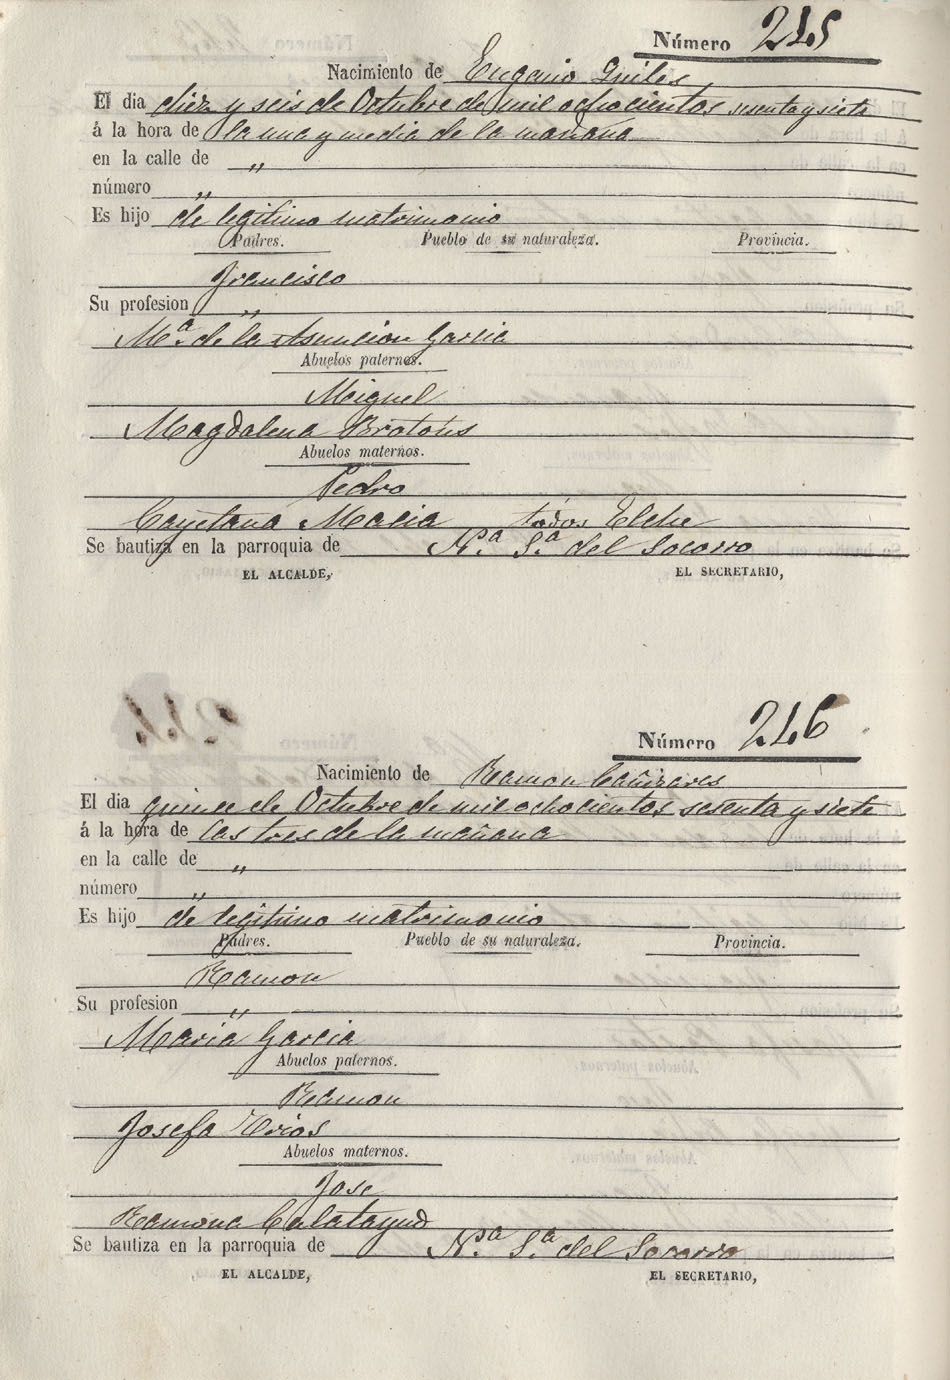 Número 245
Nacimiento de Eugenio Quiles
El dia diez y seis de Octubre de mil ochocientos sesenta y siete
á la hora de la una y media de la mañana
en la calle de "
número "
Es hijo de legitimo matrimonio
Padres. Pueblo de su naturaleza. Provincia.
Francisco
Su profesion "
Mª. de la Asuncion Garcia
Abuelos paternos.
Miguel
Magdalena Brotons
Abuelos maternos.
Pedro
Cayetana Macia todos Elche
Se bautiza en la parroquia de Nª. Sª. del Socorro
EL ALCALDE, EL SECRETARIO,
Número 246
Nacimiento de Ramon Cañizares
El dia quince de Octubre de mil ochocientos sesenta y siete
á la hora de las tres de la mañana
en la calle de "
número "
Es hijo de legitimo matrimonio
Padres. Pueblo de su naturaleza. Provincia.
Ramon
Su profesion "
Maria Garcia
Abuelos paternos.
Ramon
Josefa Rios
Abuelos maternos.
Jose
Ramona Calatayud
Se bautiza en la parroquia de Nª. Sª. del Socorro
EL ALCALDE, EL SECRETARIO,